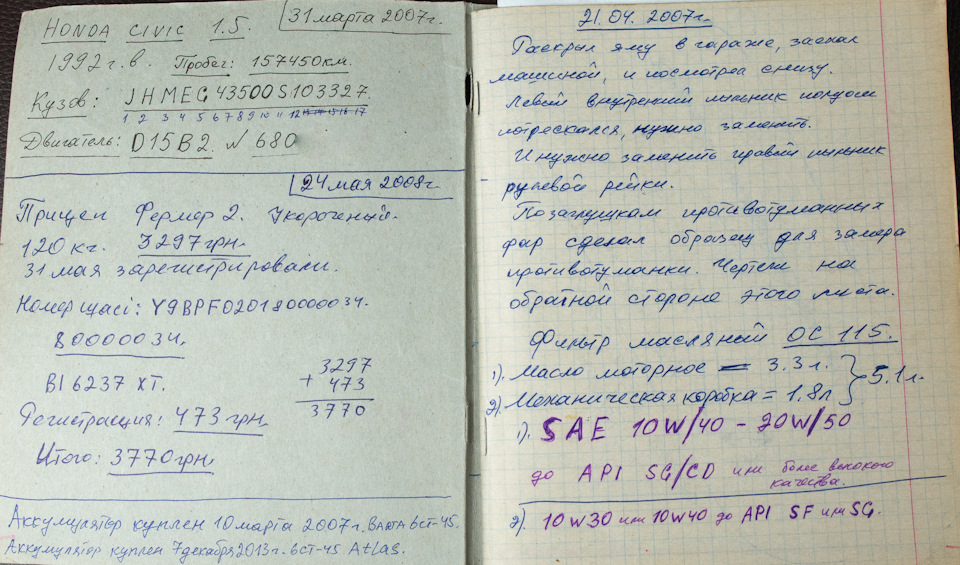 HONDA CIVIC 1.5. 31 марта 2007г.
1992 г.в. Пробег: 157450км.
Кузов: JHMEG43500S103327.
1 2 3 4 5 6 7 8 9 10 11 12 13 14 15 16 17
Двигатель: D15B2. № 680
24 мая 2008г.
Прицеп Фермер 2. Укороченный.
120 кг. 3297 грн.
31 мая зарегистрировали.
Номер шасі: Y9BPF020180000034.
80000034.
BI 6237 XT.
Регистрация: 473 грн.
Итого: 3770 грн.
3297
+ 473
3770
Аккумулятор куплен 10 марта 2007г. BARTA 6СТ-45.
Аккумулятор куплен 7 декабря 2013г. 6СТ-45 Atlas.
21.04.2007г.
Раскрыл яму в гараже, заехал
машиной, и посмотрел снизу.
Левый внутренний пыльник полуоси
потрескался, нужно заменить.
И нужно заменить правый пыльник
рулевой рейки.
По заглушкам противотуманных
фар сделал образец для замера
противотуманки. Чертеж на
обратной стороне этого листа.
Фильтр масляный ОС 115.
1). Масло моторное = 3.3л.
2). Механическая коробка = 1.8л } 5.1л.
1). SAE 10W/40 - 20W/50
до API SG/CD или более высокого
качества.
2). 10W30 или 10W40 до API SF или SG.